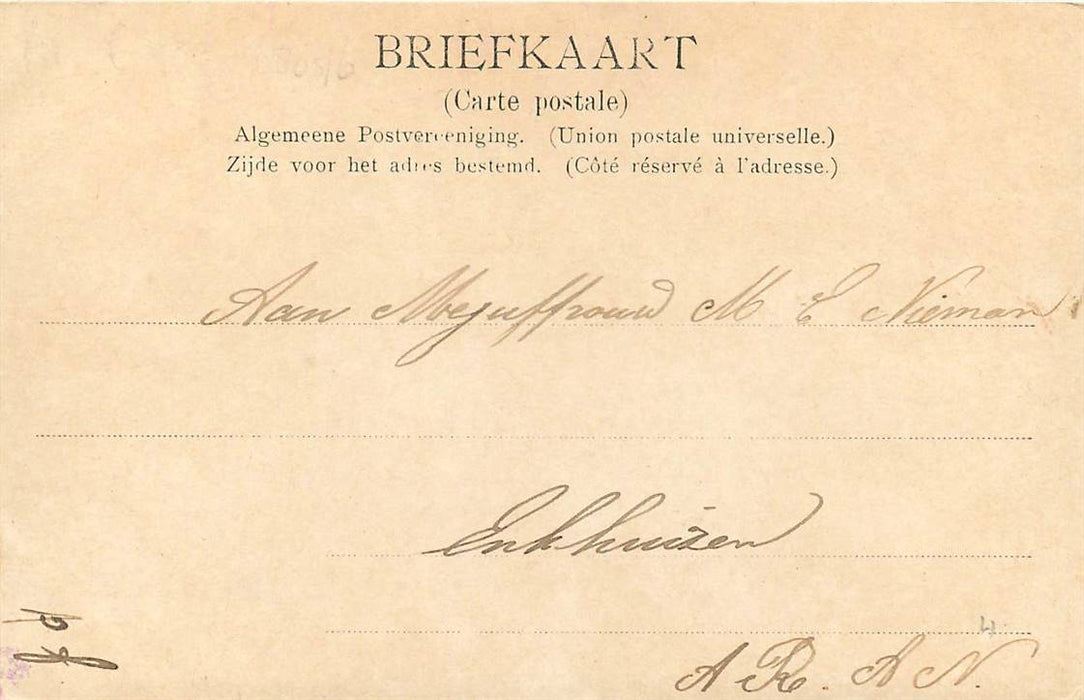 BRIEFKAART
(Carte postale)
Algemeene Postvereeniging. (Union postale universelle.)
Zijde voor het adres bestemd. (Côté réservé à l'adresse.)
Aan Mejuffrouw M E Nieman
Enkhuizen
A R. A N.